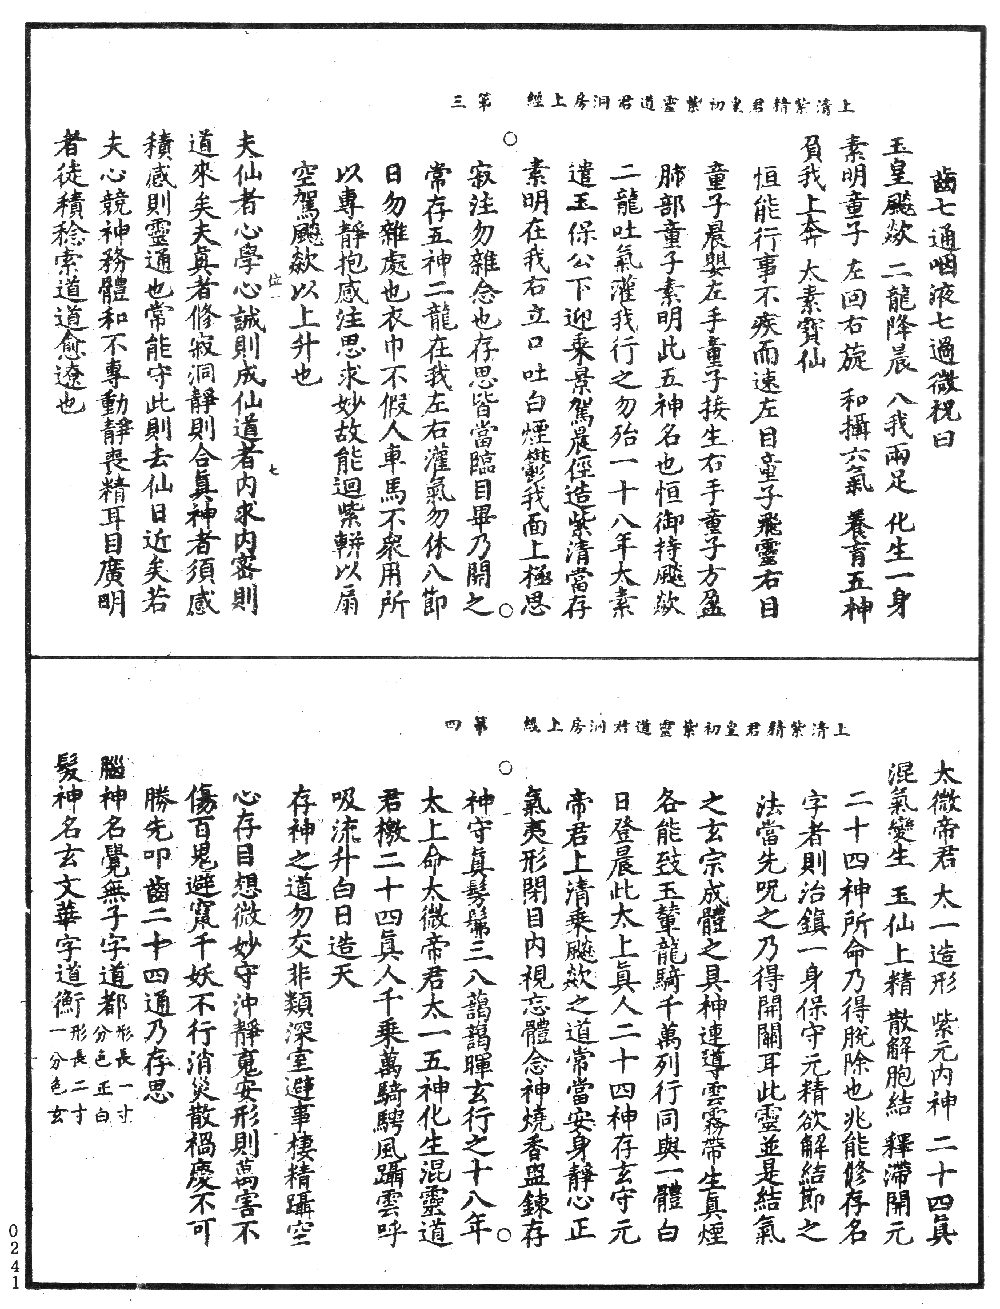 上清紫精君皇初紫靈道君洞房上經 第三
齒七通咽液七過微祝曰
玉皇飈欻 二龍降晨 八我兩足 化生一身
素明童子 左回右旋 和攝六氣 養育五神
負我上奔 太素寶仙
恒能行事不疾而速左目童子飛靈右目
童子晨嬰左手童子接生右手童子方盈
肺部童子素明此五神名也恒御持飈欻
二龍吐氣灌我行之勿殆一十八年太素
遣玉保公下迎乘景駕晨徑造紫清當存
素明在我右立口吐白煙鬱我面上極思
寂注勿雜念也存思皆當臨目畢乃開之
常存五神二龍在我左右灌氣勿休八節
日勿雜處也衣巾不假人車馬不衆用所
以專靜抱感注思求妙故能迴紫軿以扇
空駕飈欻以上升也
夫仙者心學心誠則成仙道者內求內密則
道來矣夫眞者修寂洞靜則合眞神者須感
積感則靈通也常能守此則去仙日近矣若
夫心競神務體和不專動靜喪精耳目廣明
者徒積稔索道道愈遼也
位一
七
上清紫精君皇初紫靈道君洞房上經 第四
太微帝君 太一造形 紫元內神 二十四眞
混氣變生 玉仙上精 散解胞結 釋滯開元
二十四神所命乃得脫除也兆能修存名
字者則治鎮一身保守元精欲解結節之
法當先呪之乃得開關耳此靈並是結氣
之玄宗成體之具神連導雲霧帶生真煙
各能致玉輦龍騎千萬列行同與一體白
日登晨此太上眞人二十四神存玄守元
帝君上清乘飈欻之道常當安身靜心正
氣夷形閉目內視忘體念神燒香盥鍊存
神守眞髣髴三八藹藹暉玄行之十八年
太上命太微帝君太一五神化生混靈道
君檄二十四眞人千乘萬騎騁風躡雲呼
吸流升白日造天
存神之道勿交非類深室避事棲精躡空
心存目想微妙守沖靜寬安形則萬害不
傷百鬼避竄千妖不行消災散禍慶不可
勝先叩齒二十四通乃存思
腦神名覺無子字道都形長一寸一分色正白
髮神名玄文華字道衡形長二寸一分色玄
0241